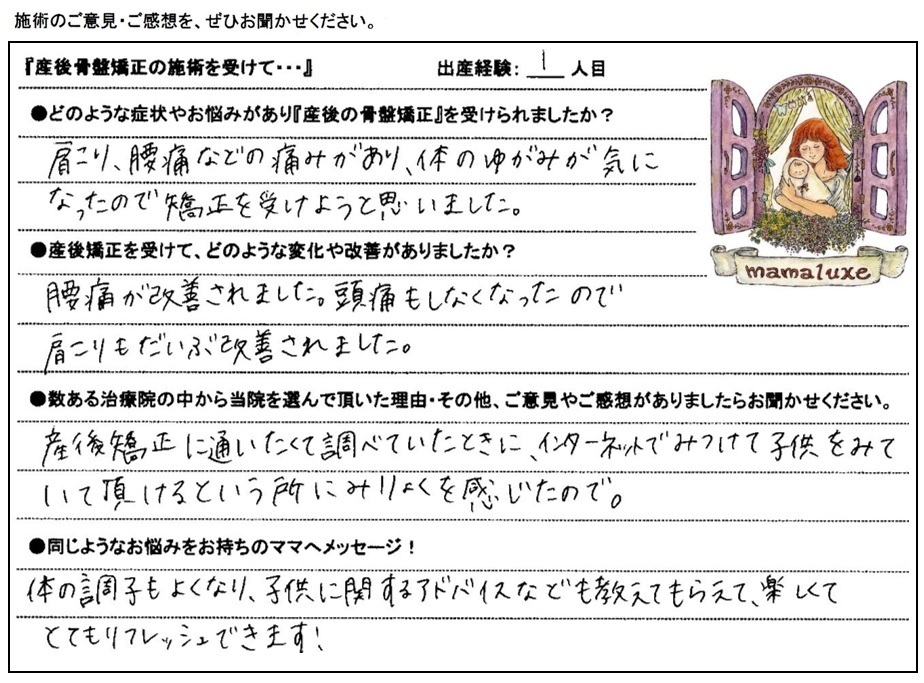 施術のご意見・ご感想を、ぜひお聞かせください。
『産後骨盤矯正の施術を受けて・・・』 出産経験: 1 人目
●どのような症状やお悩みがあり『産後の骨盤矯正』を受けられましたか？
肩こり、腰痛などの痛みがあり、体のゆがみが気に
なったので矯正を受けようと思いました。
●産後矯正を受けて、どのような変化や改善がありましたか？
腰痛が改善されました。頭痛もしなくなったので
肩こりもだいぶ改善されました。
mamaluxe
●数ある治療院の中から当院を選んで頂いた理由・その他、ご意見やご感想がありましたらお聞かせください。
産後矯正に通いたくて調べていたときに、インターネットでみつけて子供をみて
いて頂けるという所にみりょくを感じたので。
●同じようなお悩みをお持ちのママへメッセージ！
体の調子もよくなり、子供に関するアドバイスなども教えてもらえて、楽しくて
とてもリフレッシュできます！